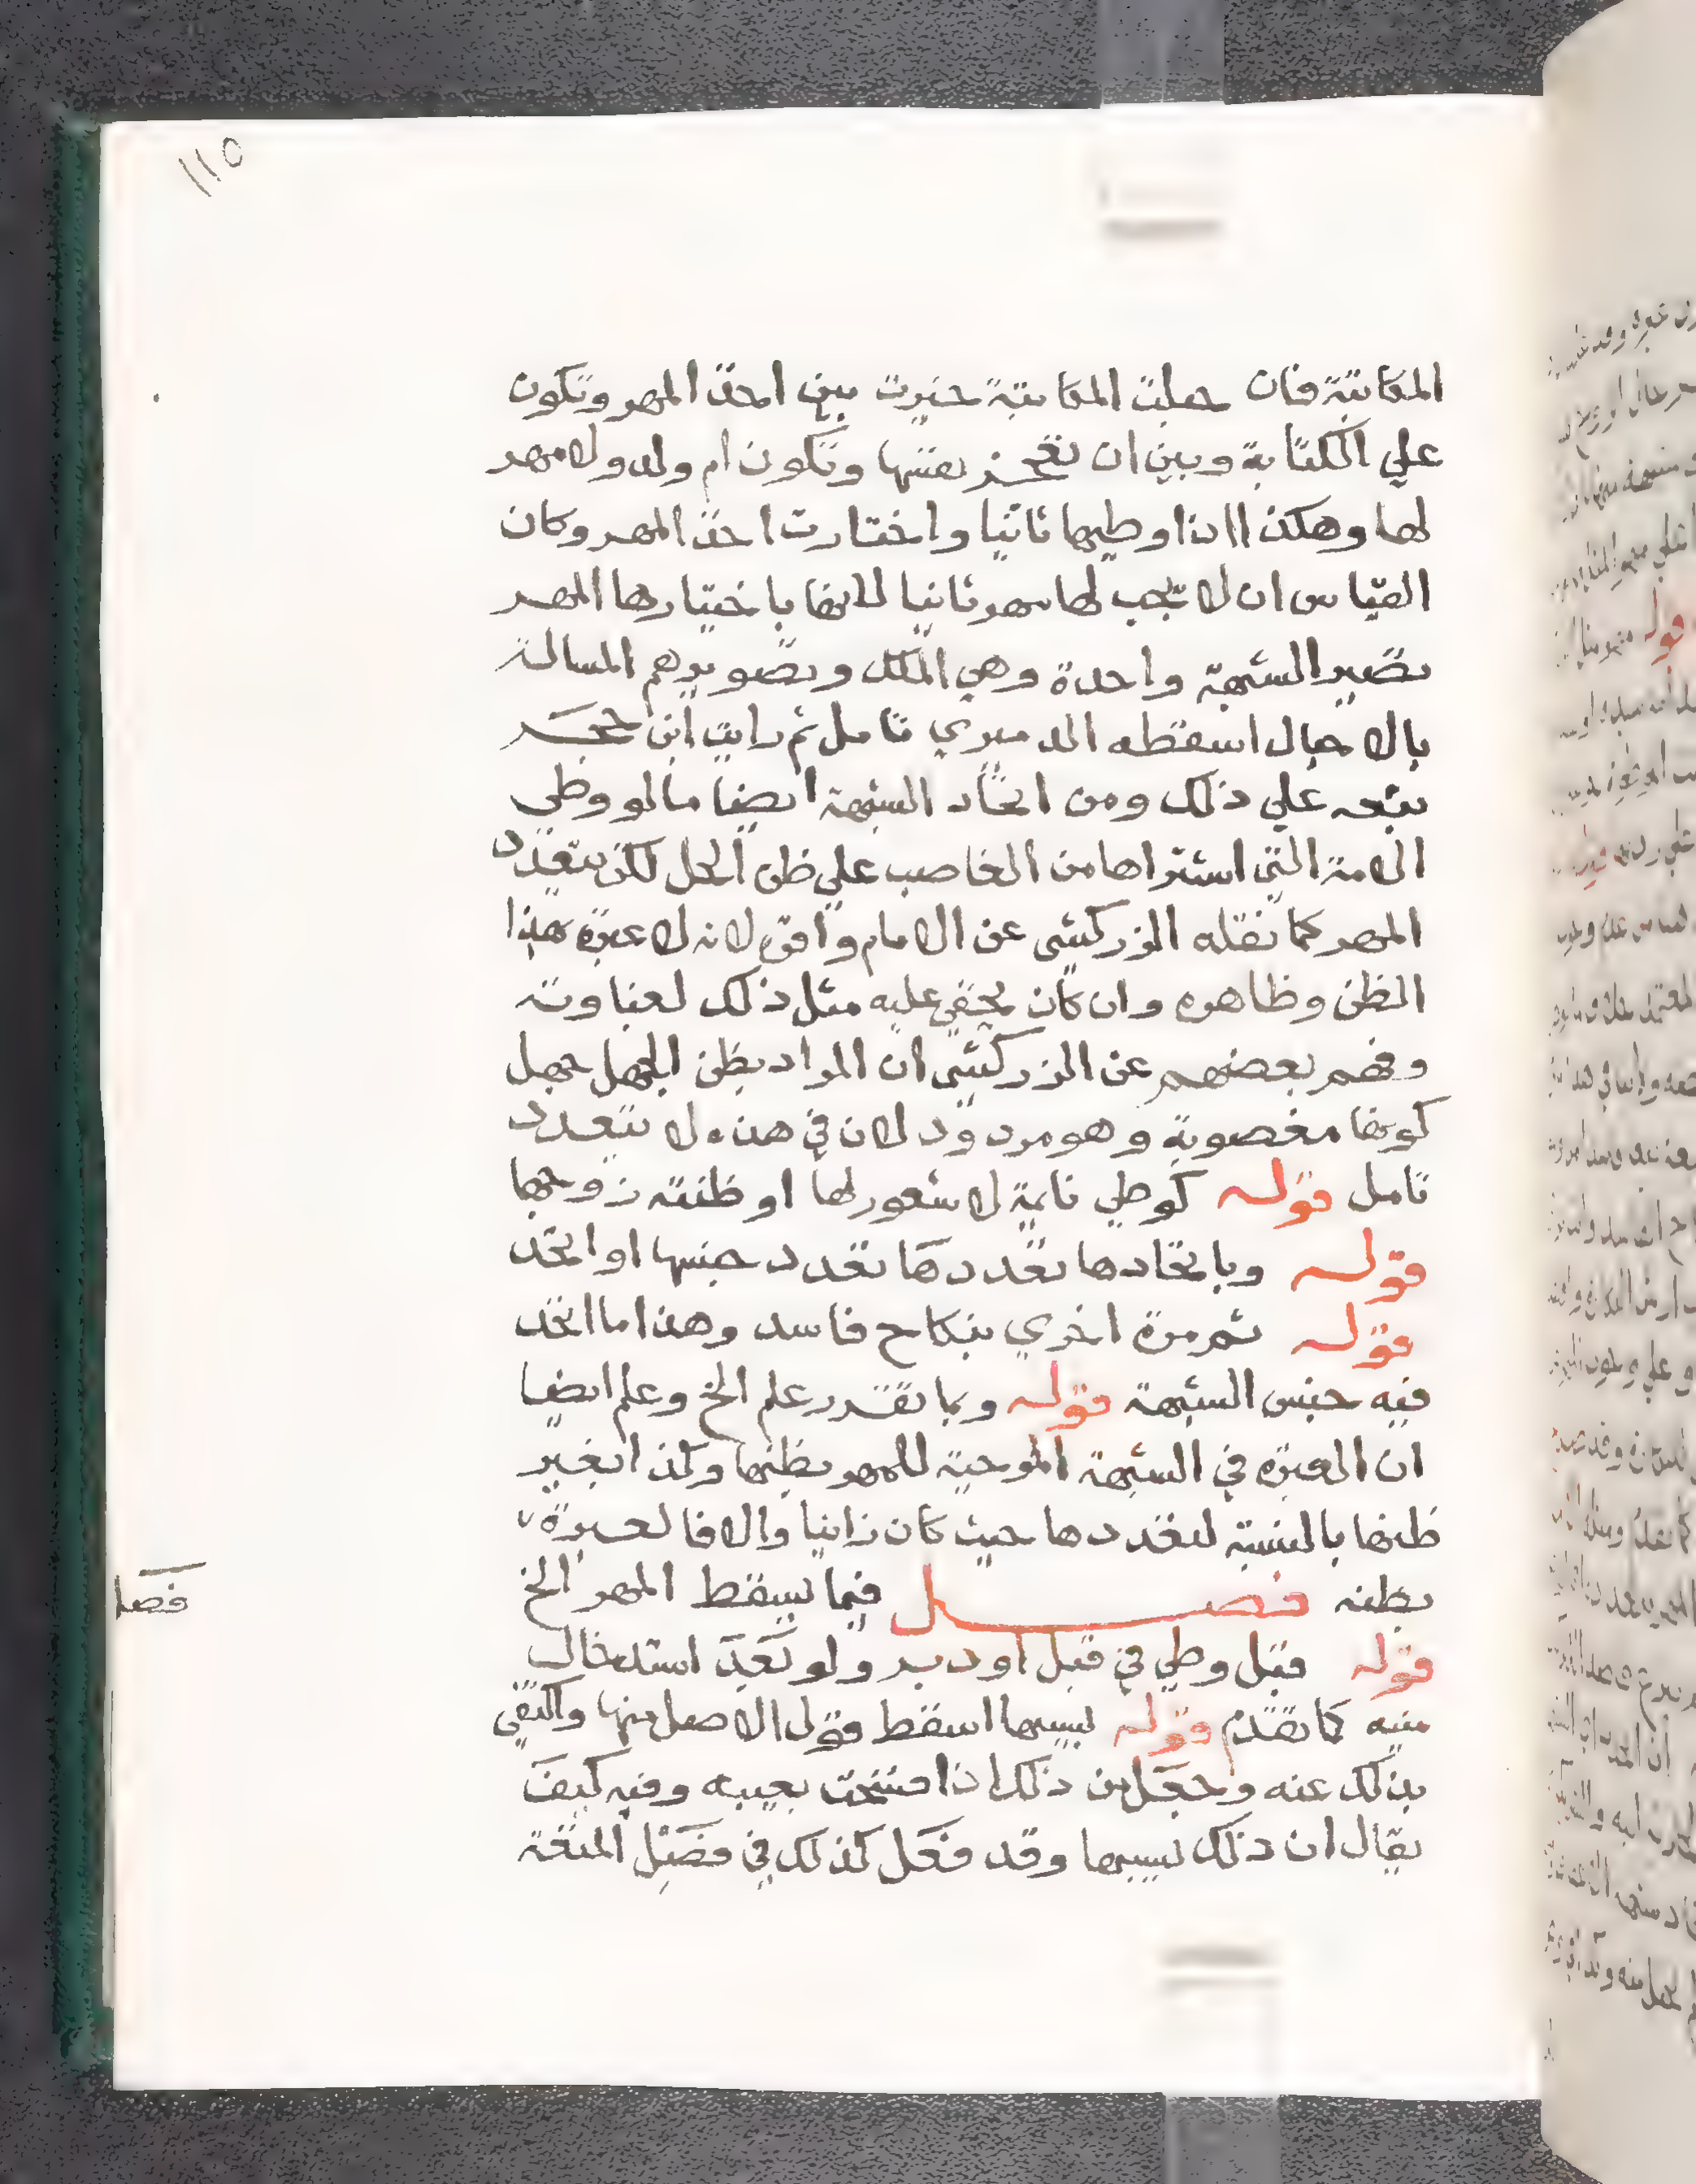 ١١٥
المكاتبة فان حملت المكاتبة خيرت بين اخذ المهر وتكون
علي الكتابة وبين ان تعجز نفسها وتكون ام ولد ولا مهر
لها وهكذا اذا وطيها ثانيا واختارت اخذ المهر وكان
القياس ان لا يجب لها مهر ثانيا لانها باختيارها المهر
تصير الشبهة واحدة وهي الملك وتصويرهم المسالة
بالاحبال اسقطه الدميري تامل ثم رايت ابن حجر
نبه علي ذلك ومن اتحاد الشبهة ايضا ما لو وطي
الامة التي اشتراها من الغاصب علي ظن الحل لكن يتعدد
المهر كما نقله الزركشي عن الامام واقره لانه لا عبرة بهذا
الظن وظاهره وان كان يخفي عليه مثل ذلك لغباوته
وفهم بعضهم عن الزركشي ان المراد بظن الجهل جهل
كونها مغصوبة وهو مردود لان في هذه لا يتعدد
تامل قوله كوطي نايمة لا شعور لها او ظنته زوجها
قوله وباتحادها تعددها تعدد جنسها او اتحد
قوله ثم مرة اخري بنكاح فاسد وهذا ما اتحد
فيه جنس الشبهة قوله وبما تقرر علم الخ وعلم ايضا
ان العبرة في الشبهة الموجبة للمهر بظنها وكذا بغير
ظنها بالنسبة لتعددها حيث كان زانيا والا فالعبرة
بظنه فصل فيما يسقط المهر الخ
فصل
قوله قبل وطي في قبل او دبر ولو بعد استدخال
منيه كما تقدم قوله بسببها اسقط قول الاصل منها واكتفي
بذلك عنه وجعل من ذلك اذا فسخت بعيبه وفيه كيف
يقال ان ذلك بسببها وقد فعل كذلك في فصل المتعة